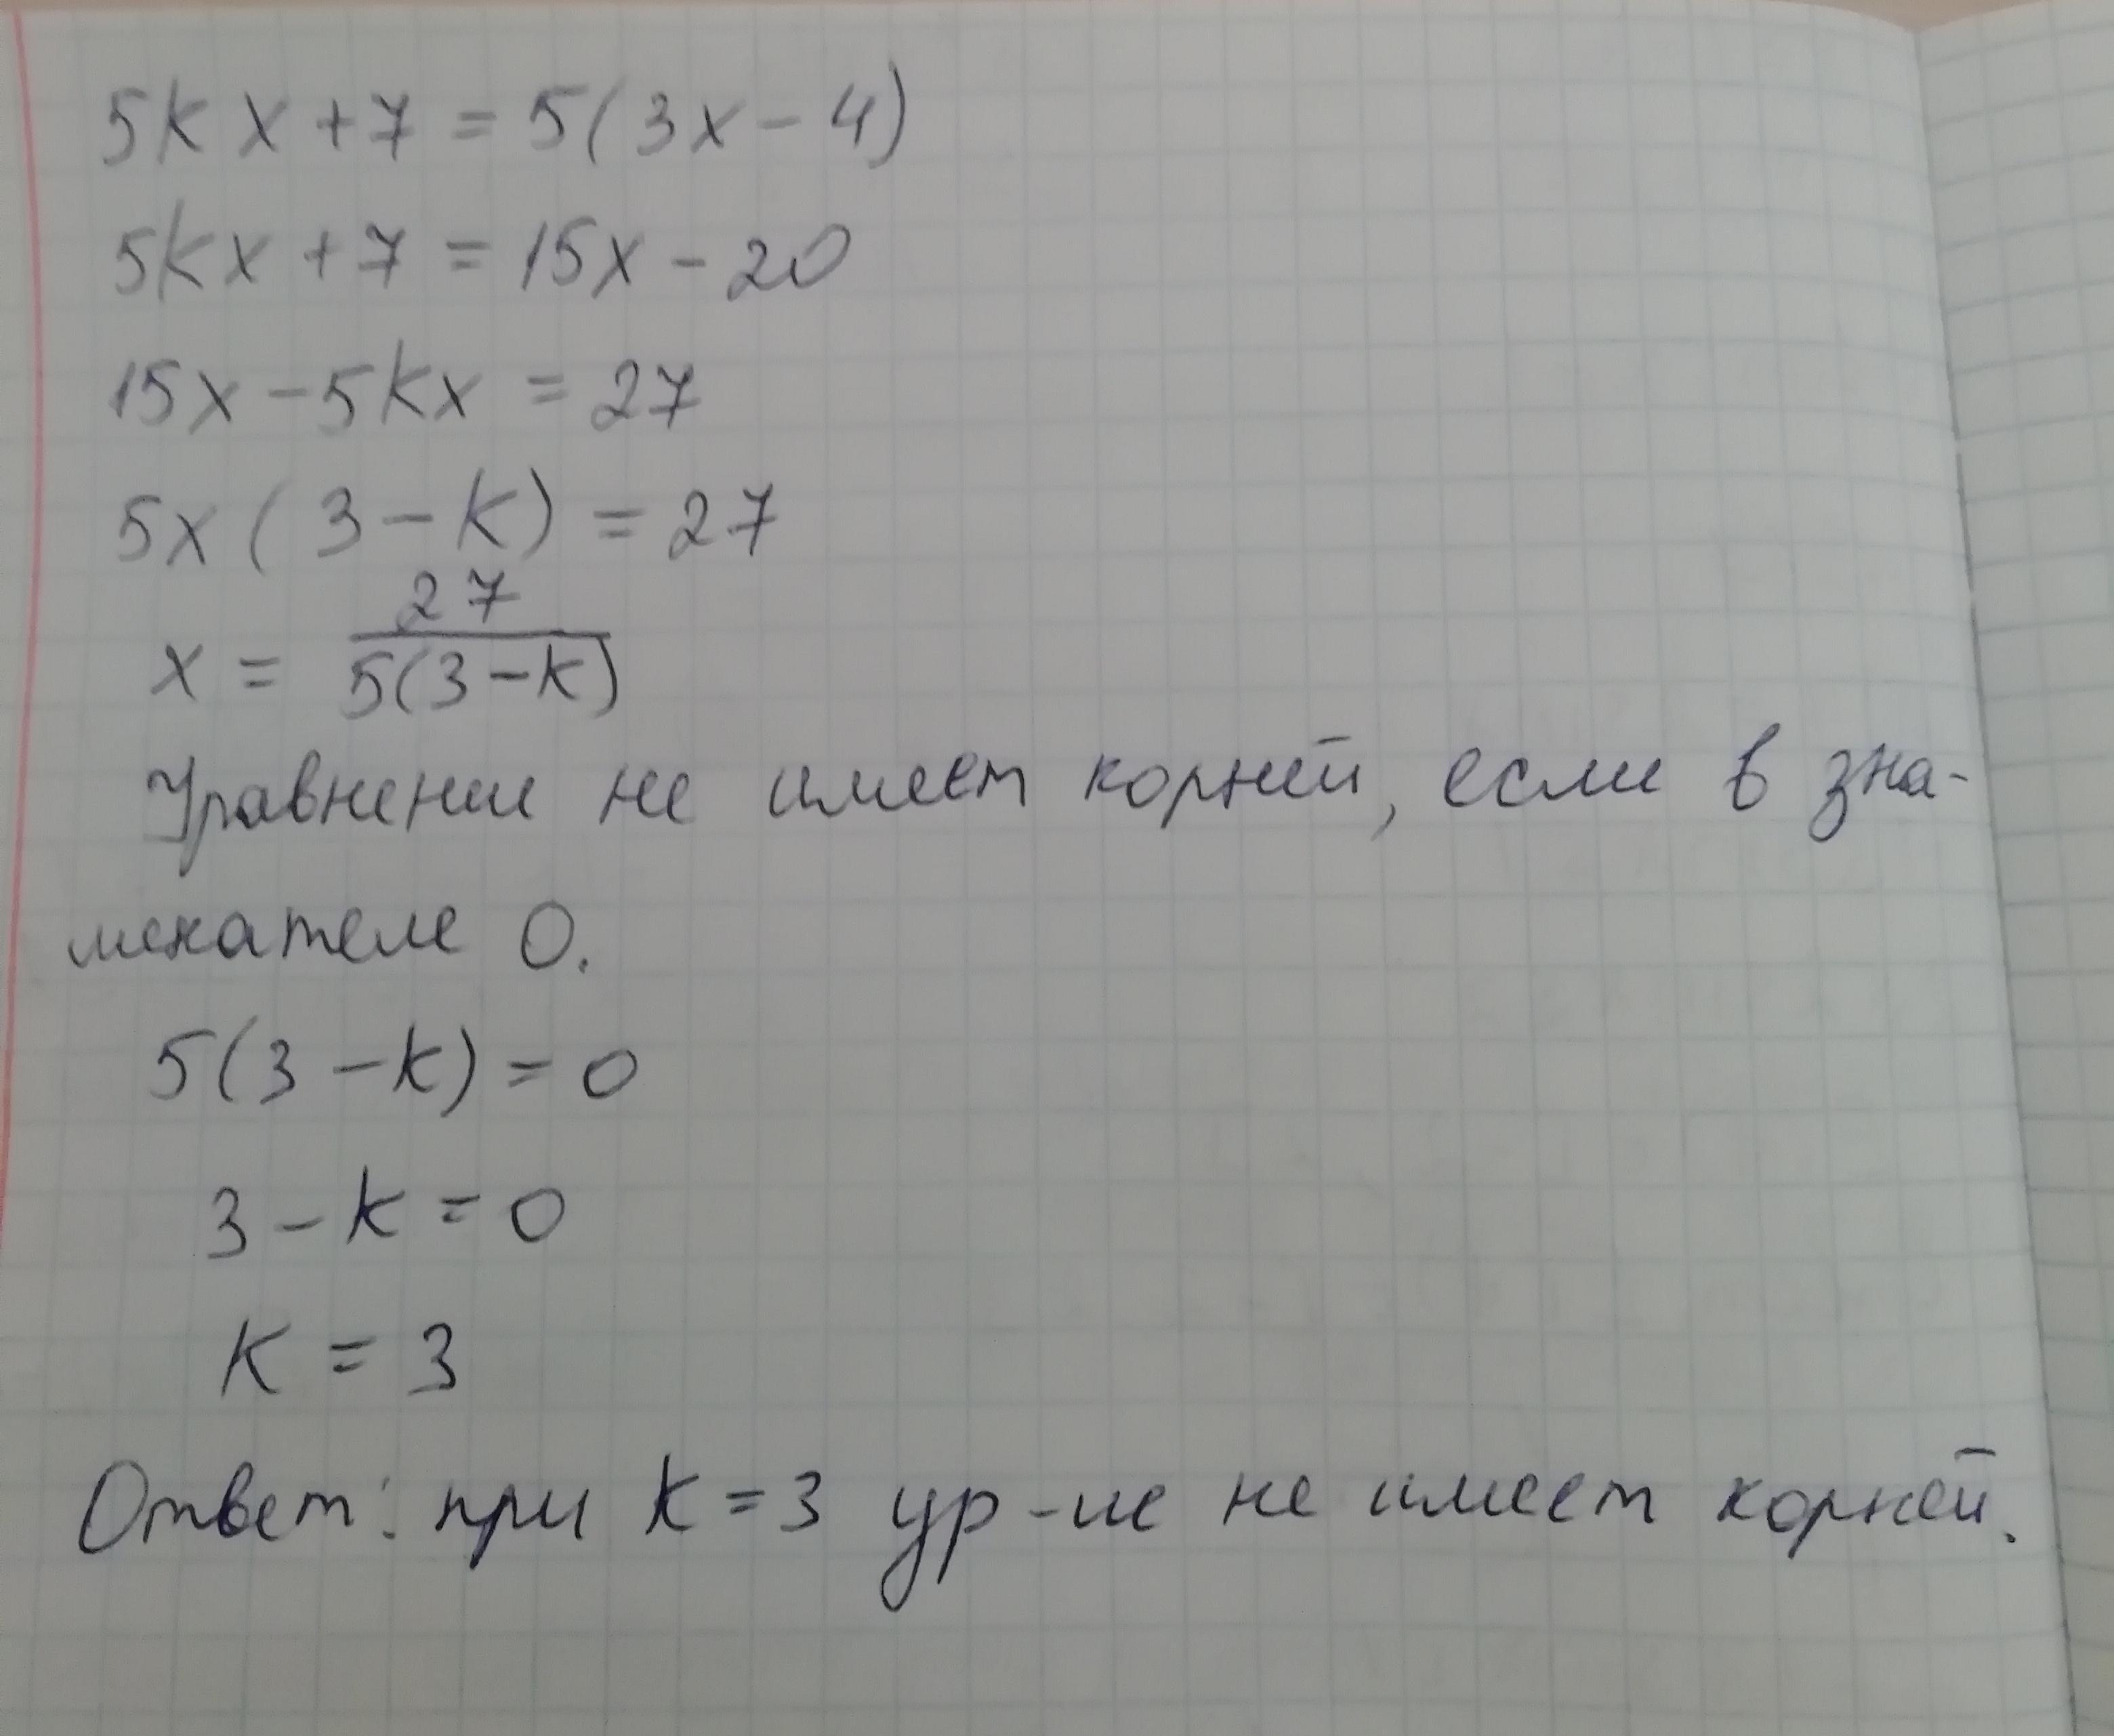 5kx + 7 = 5(3x - 4)
5kx + 7 = 15x - 20
15x - 5kx = 27
5x(3 - k) = 27
x = 27/5(3-k)
Уравнение не имеет корней, если в зна-
менателе 0.
5(3 - k) = 0
3 - k = 0
k = 3
Ответ: при k = 3 ур-ие не имеет корней.